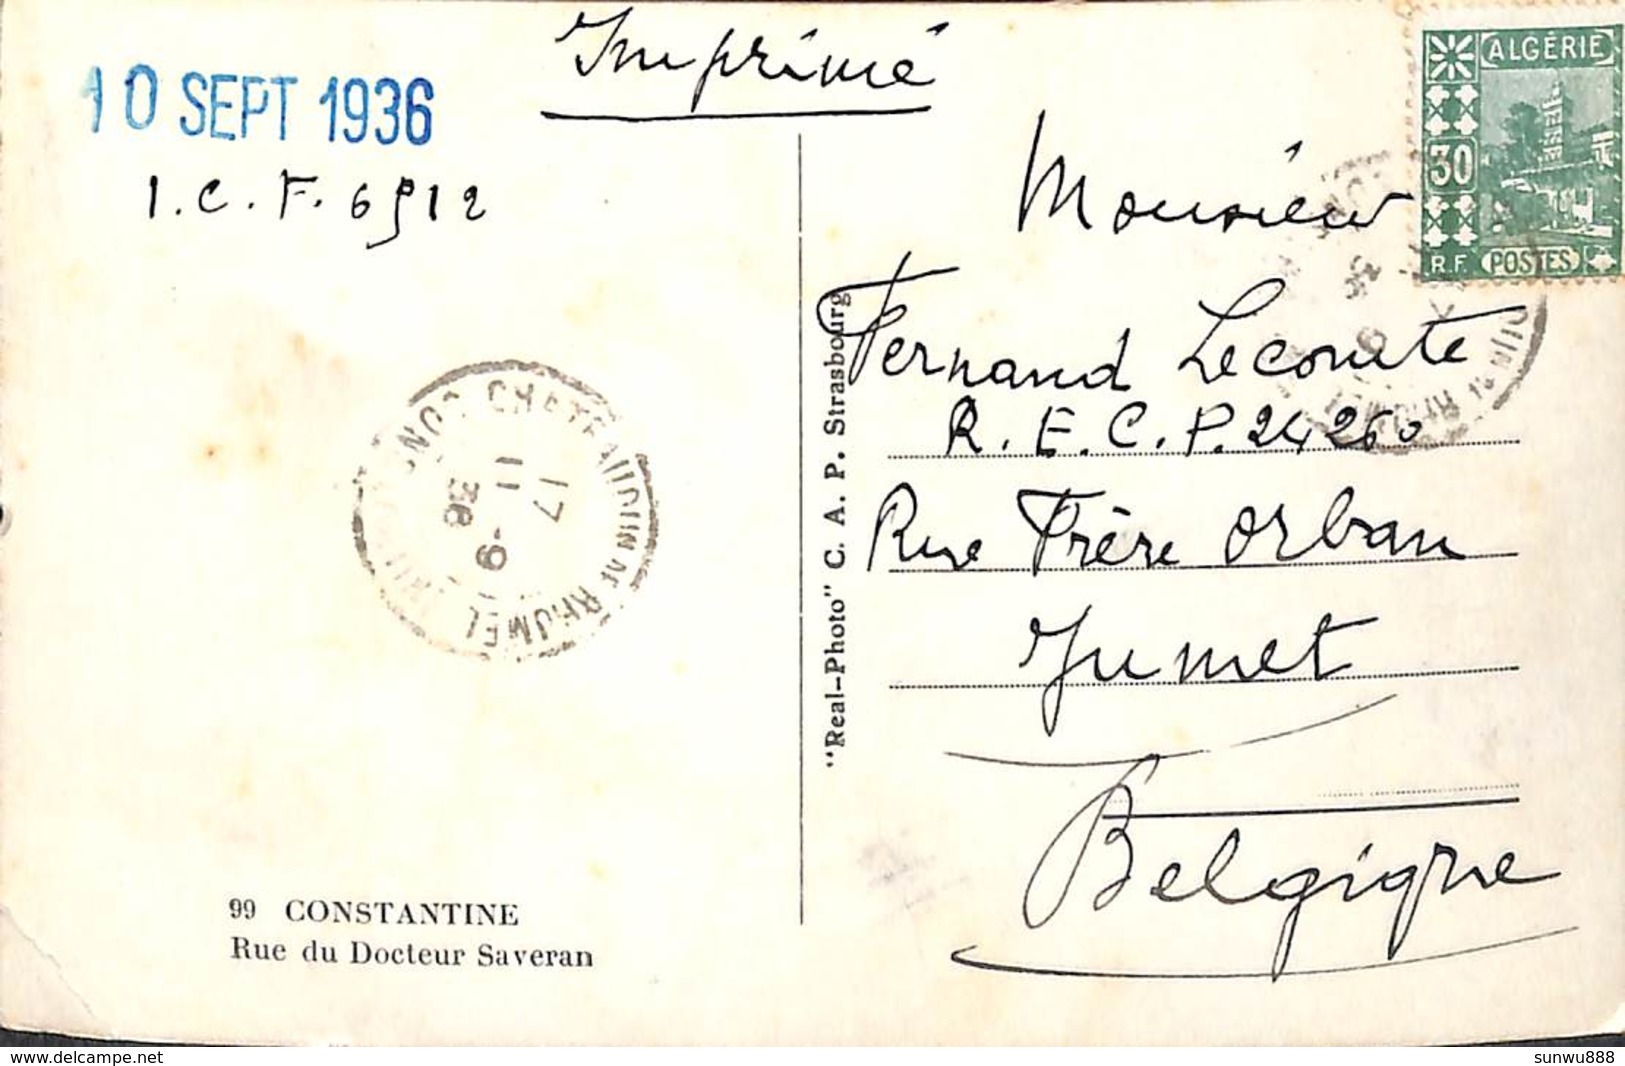 Imprimé
10 SEPT 1936
I.C.F. 6512
ALGÉRIE
30
R.F. POSTES
Monsieur
Fernand Lecomte
R.E.C.P. 24260
Rue Frère Orban
Jumet
Belgique
"Real-Photo" C. A. P. Strasbourg
CHATEAUDUN DU RHUMEL
17
11 -9
36
99 CONSTANTINE
Rue du Docteur Saveran
sunwu888